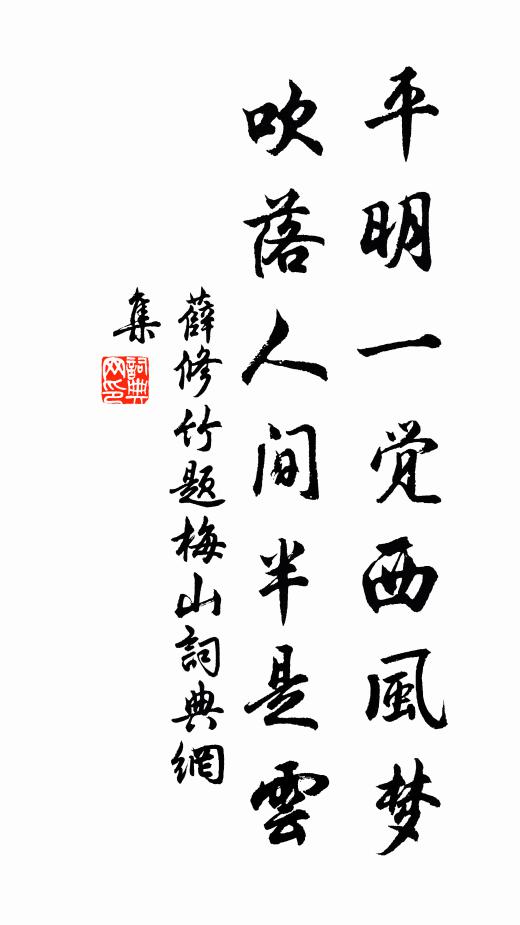 平明一觉西風梦
吹落人间半是雲
薛修竹题梅山詞典網
集
詞典网印